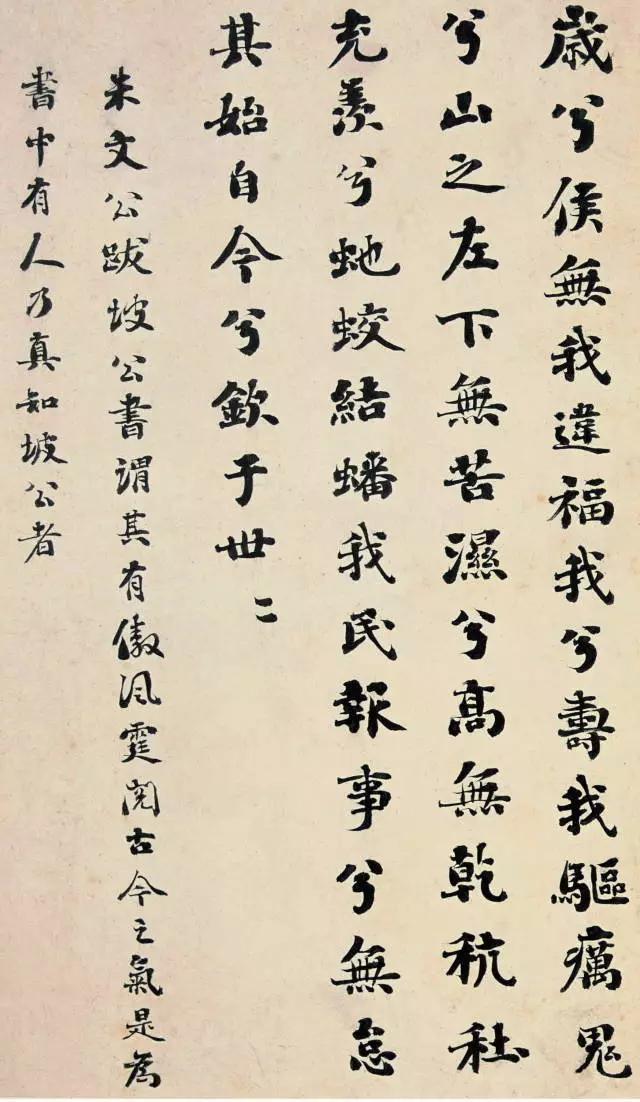 歲兮侯無我違福我兮壽我驅癘鬼
兮山之左下無苦濕兮高無乾秔稌
充羨兮虵蛟結蟠我民報事兮無怠
其始自今兮欽于世〻
朱文公跋坡公書謂其有傲風霆閱古今之氣是為
書中有人乃真知坡公者